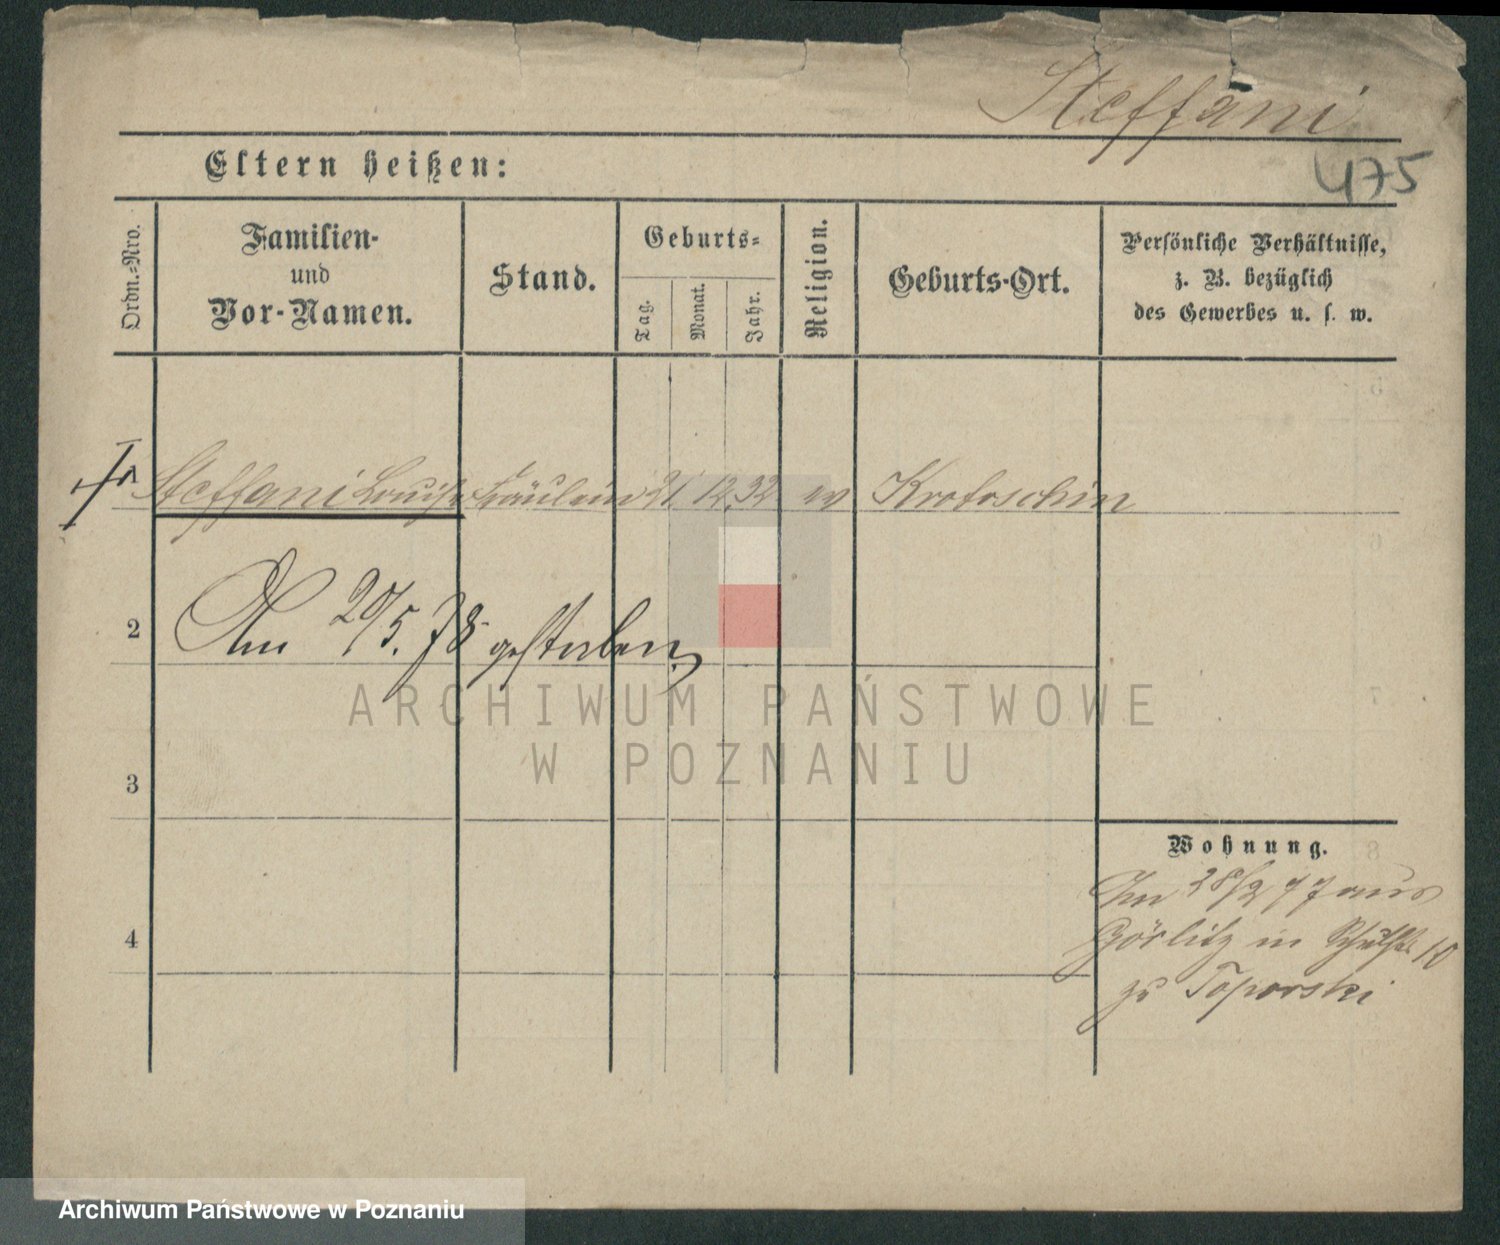 Steffani
475
Eltern heißen:
Ordn.-Nro.
Familien-
und
Vor-Namen.
Stand.
Geburts-
Tag.
Monat.
Jahr.
Religion.
Geburts-Ort.
Persönliche Verhältnisse,
z. B. bezüglich
des Gewerbes u. s. w.
1 Steffani Louise Fräulein 21 12 32 ev Krotoschin
2
Am 20/5. 78 gestorben
3
4
Wohnung.
Am 28/2 77 aus
Görlitz in Schulstr 10
zu Toporski
ARCHIWUM PAŃSTWOWE
W POZNANIU
Archiwum Państwowe w Poznaniu